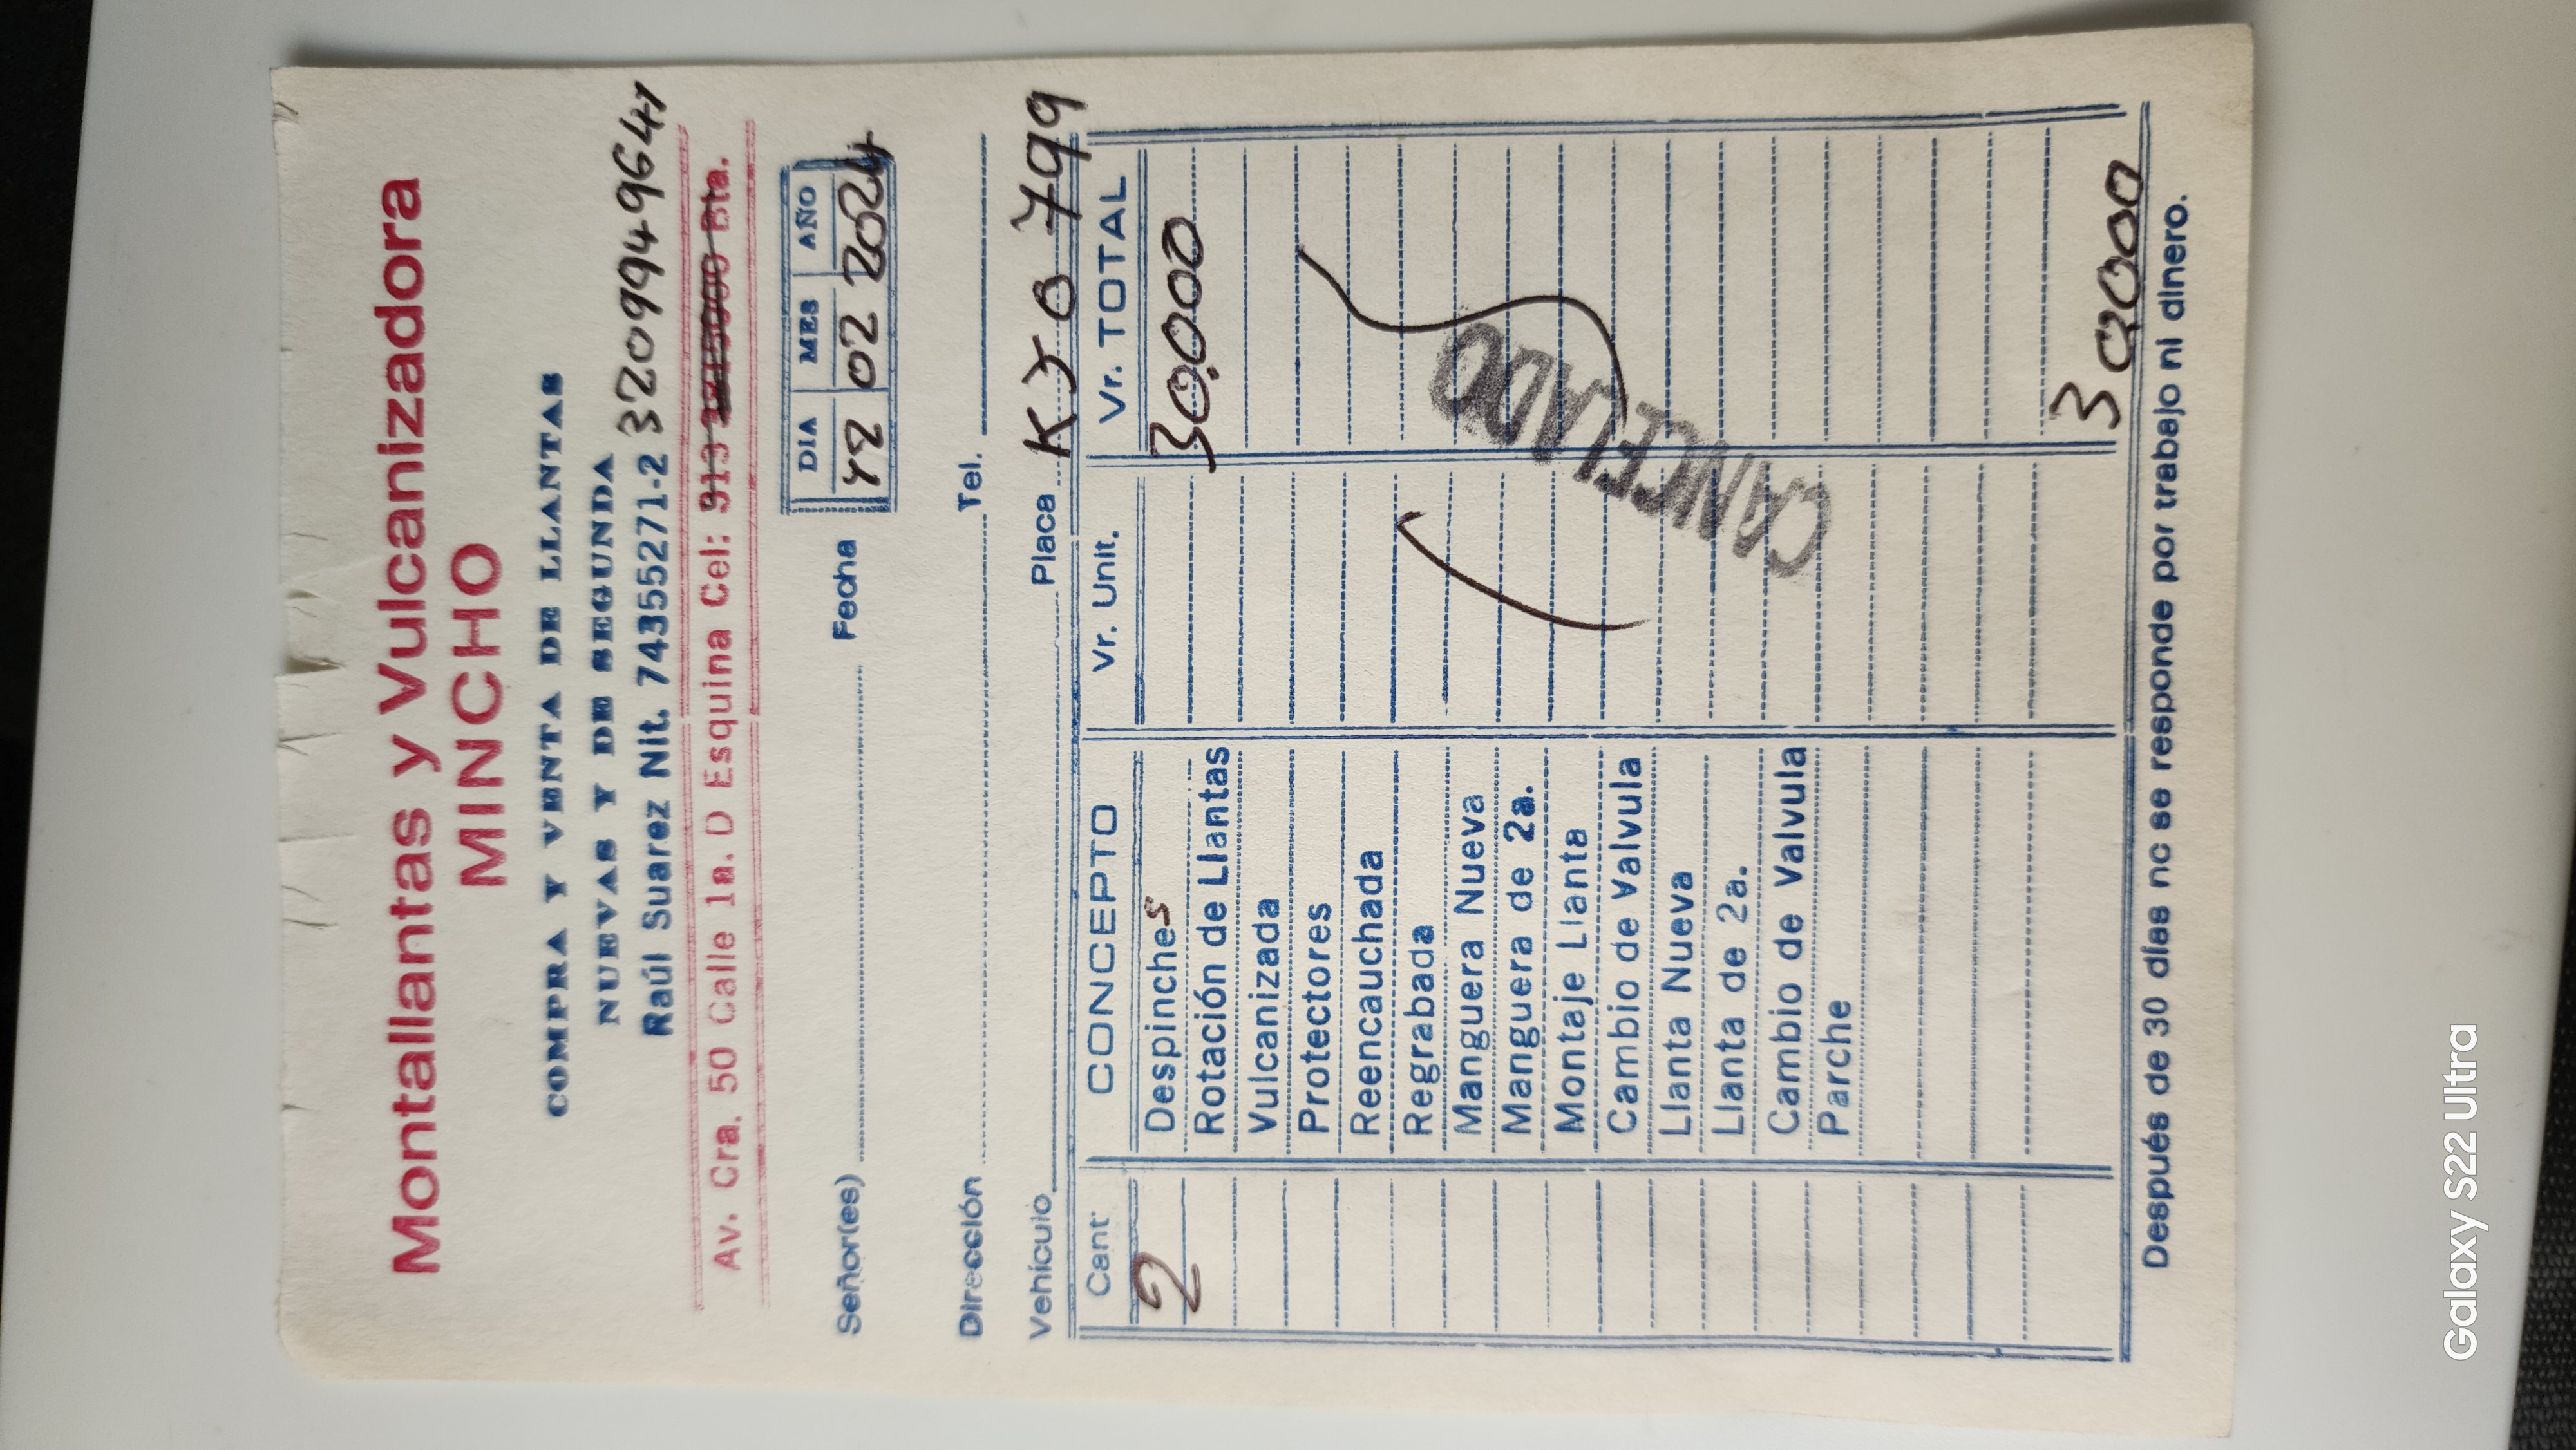 Montallantas y Vulcanizadora
MINCHO
COMPRA Y VENTA DE LLANTAS
NUEVAS Y DE SEGUNDA
Raúl Suarez Nit. 74355271-2 3209949641
Av. Cra. 50 Calle 1a. D Esquina Cel: Bta.
DIA MES AÑO
Señor(es) Fecha 12 02 2024
Dirección Tel.
Vehículo Placa 799
Cant CONCEPTO Vr. Unit. Vr. TOTAL
2 Despinches 30.000
Rotación de Llantas
Vulcanizada
Protectores
Reencauchada
Regrabada
Manguera Nueva
Manguera de 2a.
Montaje Llanta
Cambio de Valvula
Llanta Nueva
Llanta de 2a.
Cambio de Valvula
Parche
CANCELADO
30.000
Después de 30 días no se responde por trabajo ni dinero.
Galaxy S22 Ultra